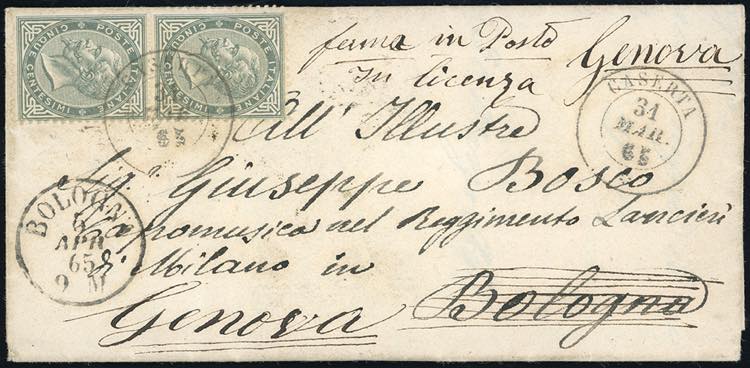 POSTE ITALIANE
CINQUE CENTESIMI
POSTE ITALIANE
CINQUE CENTESIMI
ferma in Posta Genova
in licenza
CASERTA
31
MAR.
65
All' Illustre
Sig. Giuseppe Bosco
Capomusica nel Reggimento Lancieri
BOLOGNA
6
APR
65
9 M
di Milano in Bologna
Genova